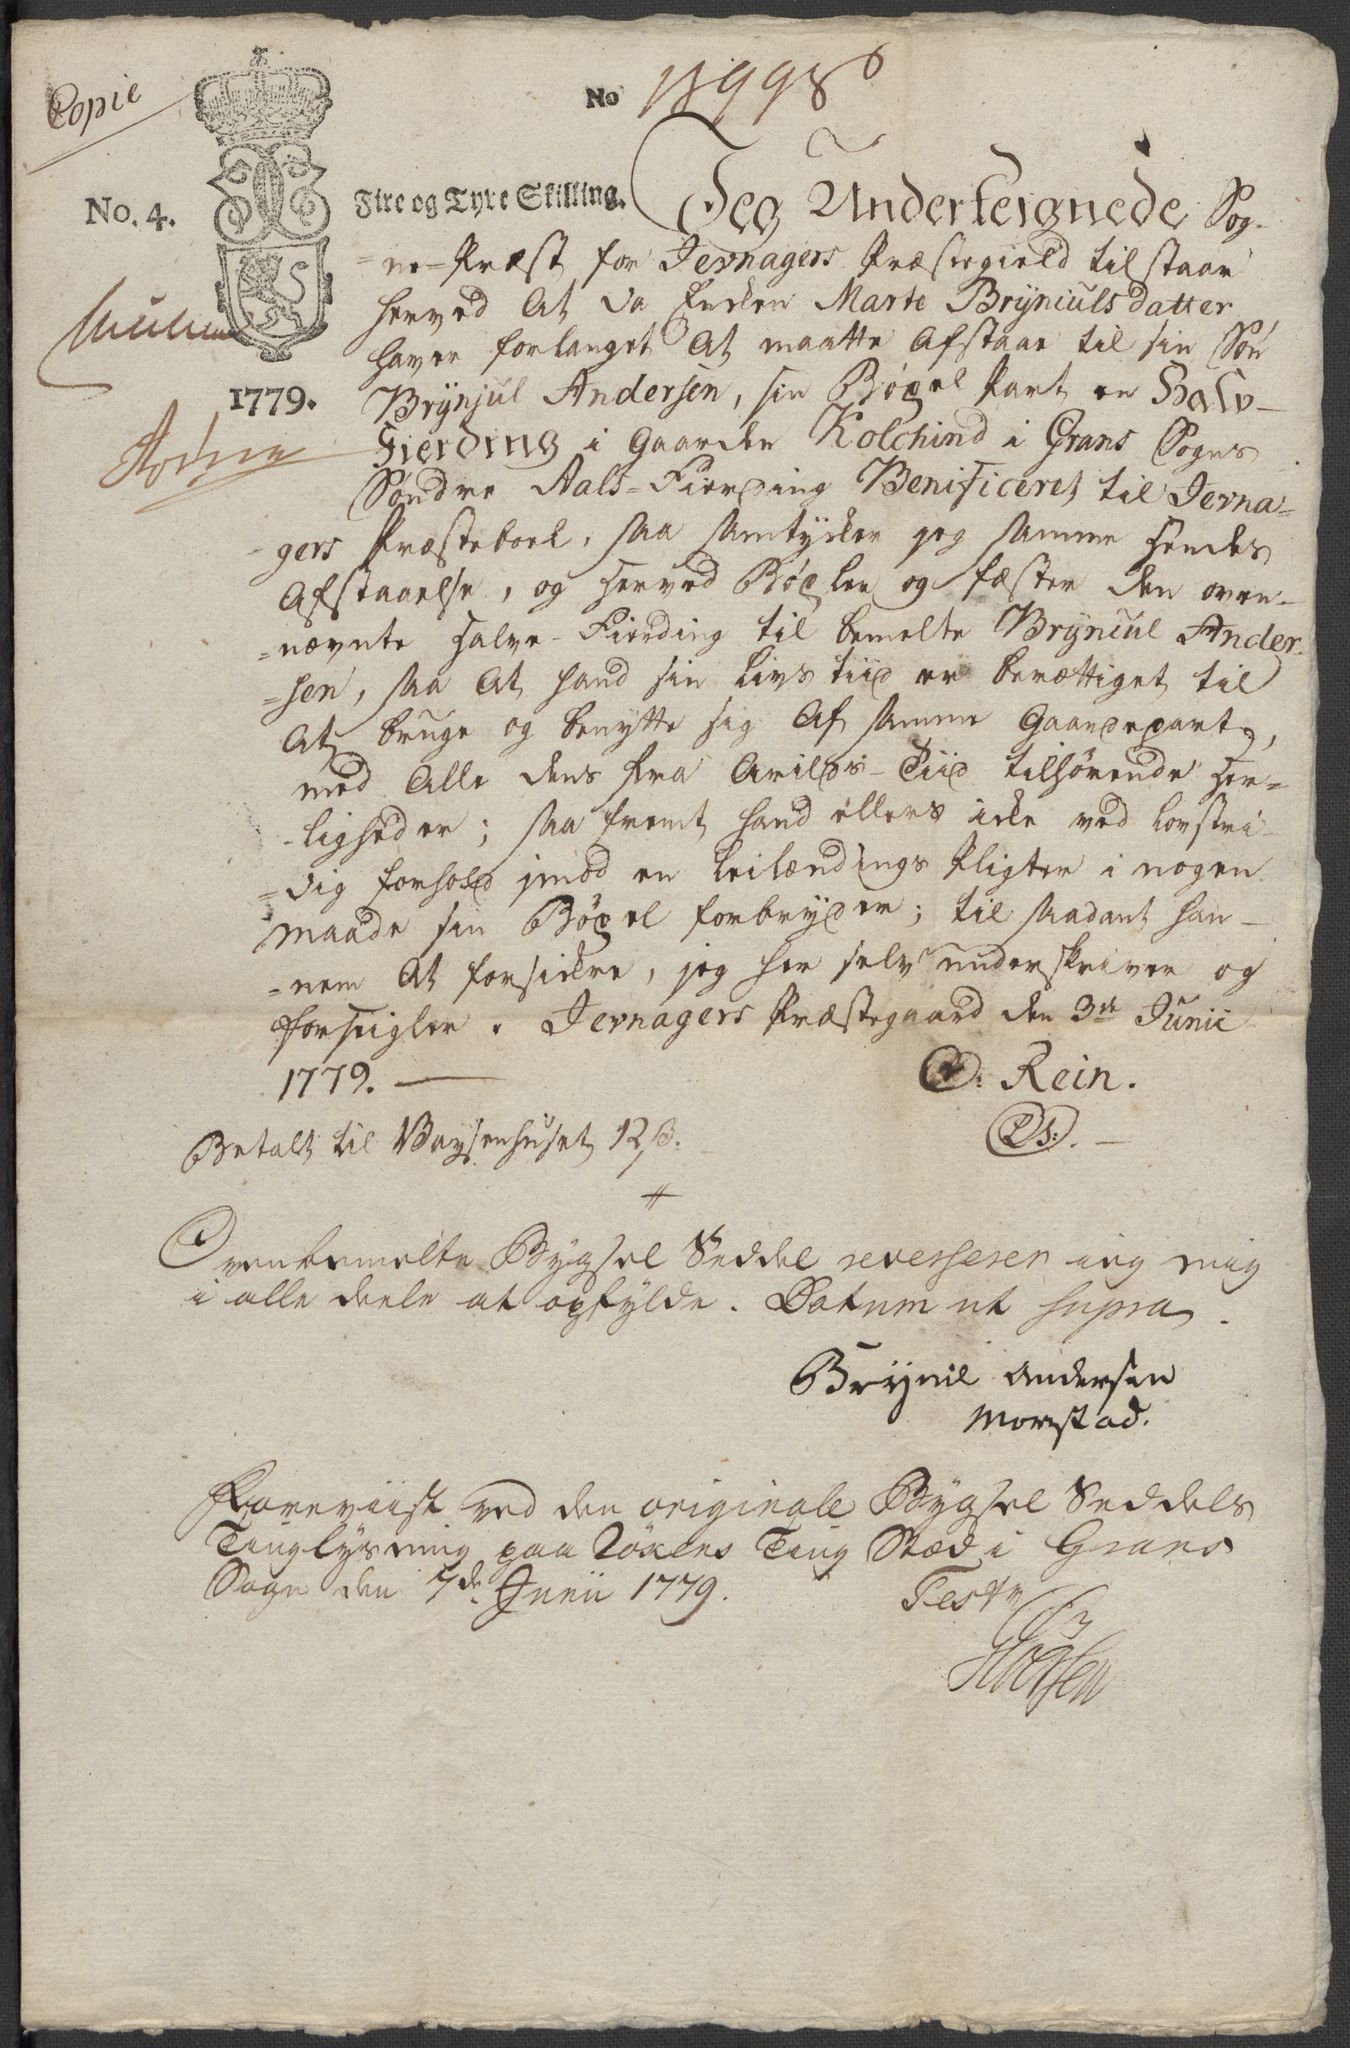 Copie
No 15998
No. 4.
Fire og Tyve Skilling.
1779.
Jeg Underteignede Sog-
=ne-Præst for Jevnagers Præstegield tilstaar
herved At da Enken Marte Bryniuls datter
haver forlanget At maatte Afstaae til sin Søn
Brynjul Andersen, sin Bøxel Part en Halv-
Fierding i Gaarden Kolchind i Grans Sogns
Søndre Aals-Fierding Benificeret til Jevna=
gers Præsteboel, saa samtycker jeg samme Hendes
Afstaaelse, og Herved Bøxler og fæster den oven-
=nævnte Halve-Fierding til bemelte Bryniul Ander-
=sen, saa At hand sin Livs tiid er berættiget til
At bruge og benytte sig Af samme Gaardepart,
med Alle dens fra Arilds-Tiid tilhørende Her=
-ligheder; saa fremt hand ellers icke ved lovstri-
=dig forhold jmod en Leilændings Pligter i nogen
maade sin Bøxel forbryder; til saadant han-
=nem At forsickre, jeg her selv underskriver og
forseigler. Jevnagers Præstegaard den 3de Junii
1779.
Rein.
(L.S.)
Betalt til Vaysenhuset 12 ß.
Ovenbemelte Bygsel Seddel reverserer ieg mig
i alle deele at opfylde. Datum ut supra.
Brynil Andersen
Morstad.
Foreviist ved den originale Bygsel Seddels
Tinglysning paa Røxens Ting Stæd i Grans
Sogn den 7de Junii 1779.
Test